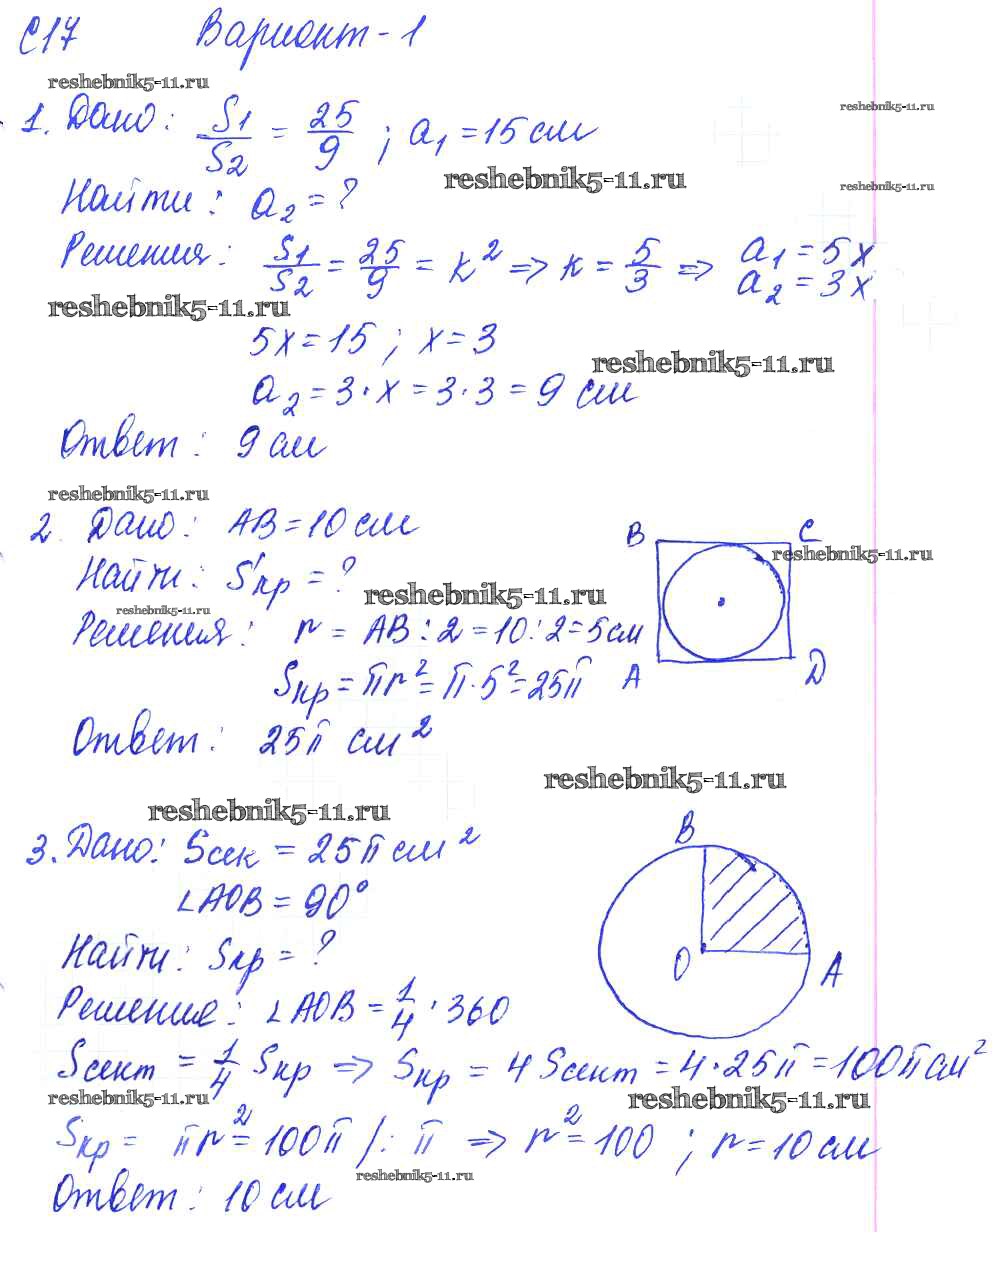 С17 Вариант-1
reshebnik5-11.ru
1. Дано: S1/S2 = 25/9 ; a1 = 15 см
reshebnik5-11.ru
reshebnik5-11.ru
Найти: a2 = ?
reshebnik5-11.ru
Решения: S1/S2 = 25/9 = k² => k = 5/3 => a1 = 5x
a2 = 3x
reshebnik5-11.ru
5x = 15 ; x = 3
reshebnik5-11.ru
a2 = 3 · x = 3 · 3 = 9 см
Ответ: 9 см
reshebnik5-11.ru
2. Дано: AB = 10 см
B C
reshebnik5-11.ru
Найти: Sкр = ?
reshebnik5-11.ru
reshebnik5-11.ru
Решения: r = AB : 2 = 10 : 2 = 5 см
Sкр = πr² = π · 5² = 25π
A D
Ответ: 25π см²
reshebnik5-11.ru
reshebnik5-11.ru
3. Дано: Sсек = 25π см²
B
∠AOB = 90°
Найти: Sкр = ?
O A
Решение: ∠AOB = 1/4 · 360
Sсект = 1/4 Sкр => Sкр = 4 Sсект = 4 · 25π = 100π см²
reshebnik5-11.ru
reshebnik5-11.ru
Sкр = πr² = 100π /: π => r² = 100 ; r = 10 см
reshebnik5-11.ru
Ответ: 10 см